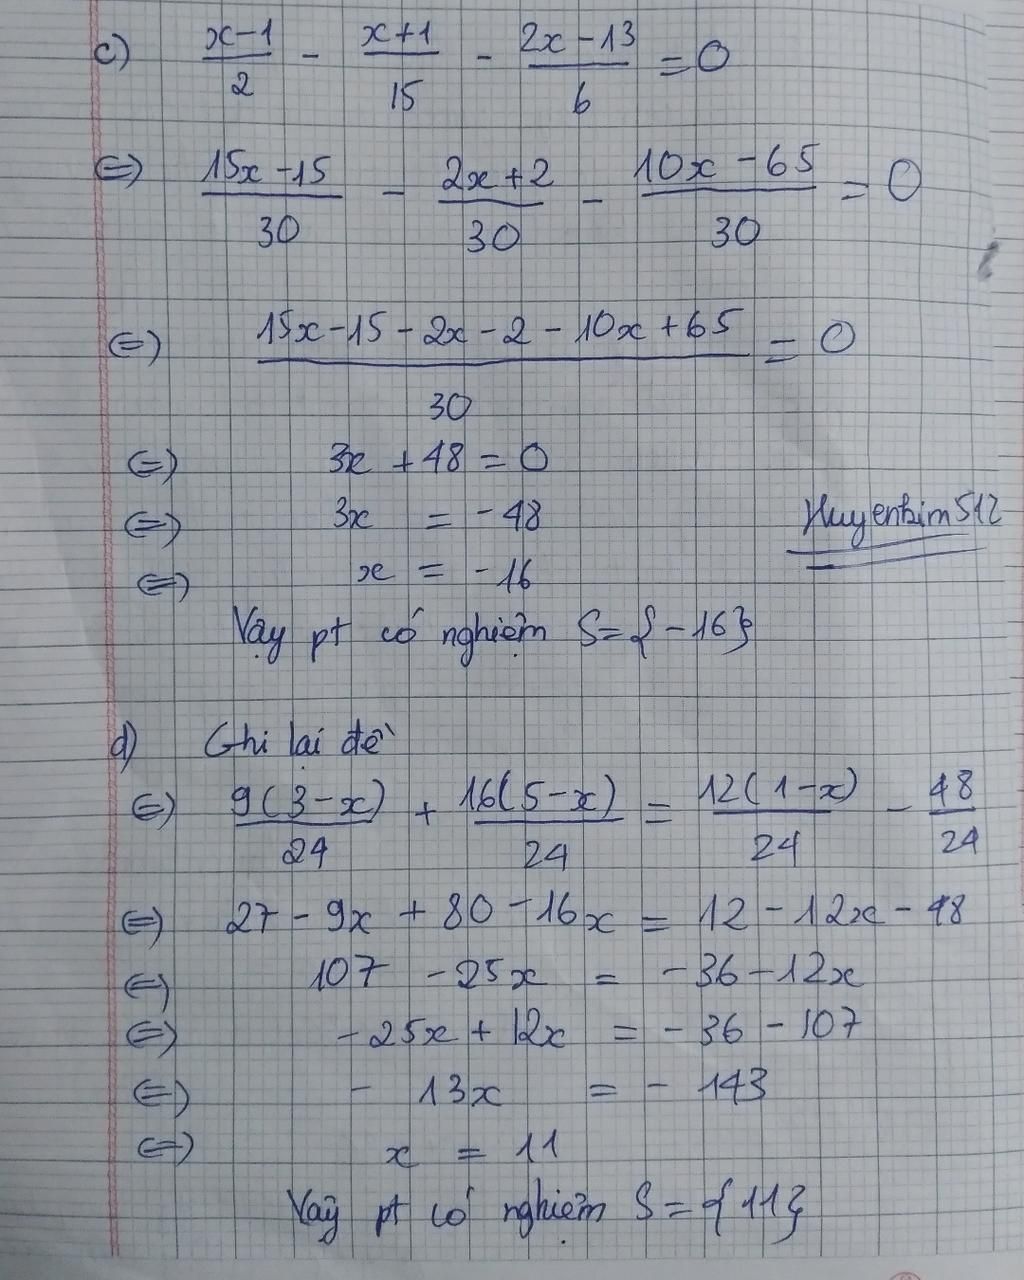 c) (x-1)/2 - (x+1)/15 - (2x-13)/6 = 0
⇔) (15x-15)/30 - (2x+2)/30 - (10x-65)/30 = 0
⇔) (15x-15-2x-2-10x+65)/30 = 0
⇔) 3x + 48 = 0
⇔) 3x = -48
Huyenbim512
⇔) x = -16
Vậy pt có nghiệm S={-16}
d) Ghi lại đề
⇔) 9(3-x)/24 + 16(5-x)/24 = 12(1-x)/24 - 48/24
⇔) 27 - 9x + 80 - 16x = 12 - 12x - 48
⇔) 107 - 25x = -36 - 12x
⇔) -25x + 12x = -36 - 107
⇔) - 13x = - 143
⇔) x = 11
Vậy pt có nghiệm S = {11}